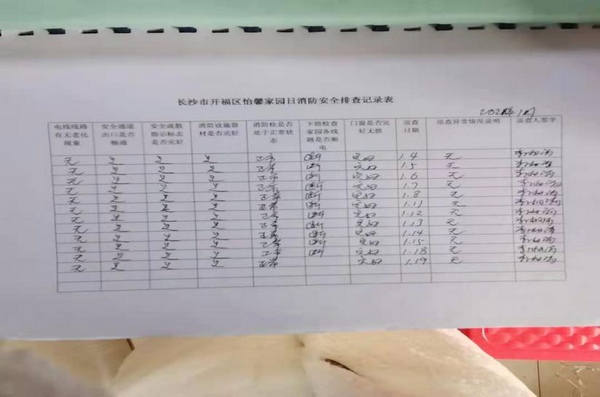 长沙市开福区怡馨家园日消防安全排查记录表
2021年1月
电线线路 安全通道 安全疏散 消防设施器 消防栓是否 下班检查 门窗是否完 巡查 巡查异常情况说明 巡查人签字
有无老化 出口是否 指示标志 材是否完好 处于正常状 家园各线 好无损 日期
现象 畅通 是否完好 态 路是否断
电
无 是 是 是 正常 断 完好 1.4 无
无 是 是 是 正常 断 完好 1.5 无
无 是 是 是 正常 断 完好 1.6 无
无 是 是 是 正常 断 完好 1.7 无
无 是 是 是 正常 断 完好 1.8 无
无 是 是 是 正常 断 完好 1.11 无
无 是 是 是 正常 断 完好 1.12 无
无 是 是 是 正常 断 完好 1.13 无
无 是 是 是 正常 断 完好 1.14 无
无 是 是 是 正常 断 完好 1.15 无
无 是 是 是 正常 断 完好 1.18 无
无 是 是 是 正常 完好 1.19 无